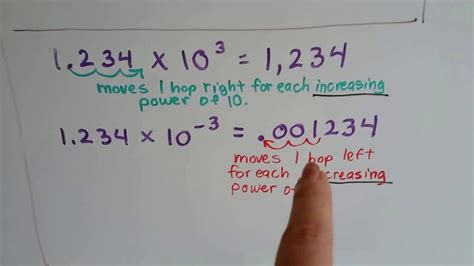 1.234 × 10³ = 1,234
moves 1 hop right for each increasing
power of 10.
1.234 × 10⁻³ = .001234
moves 1 hop left
for each
power